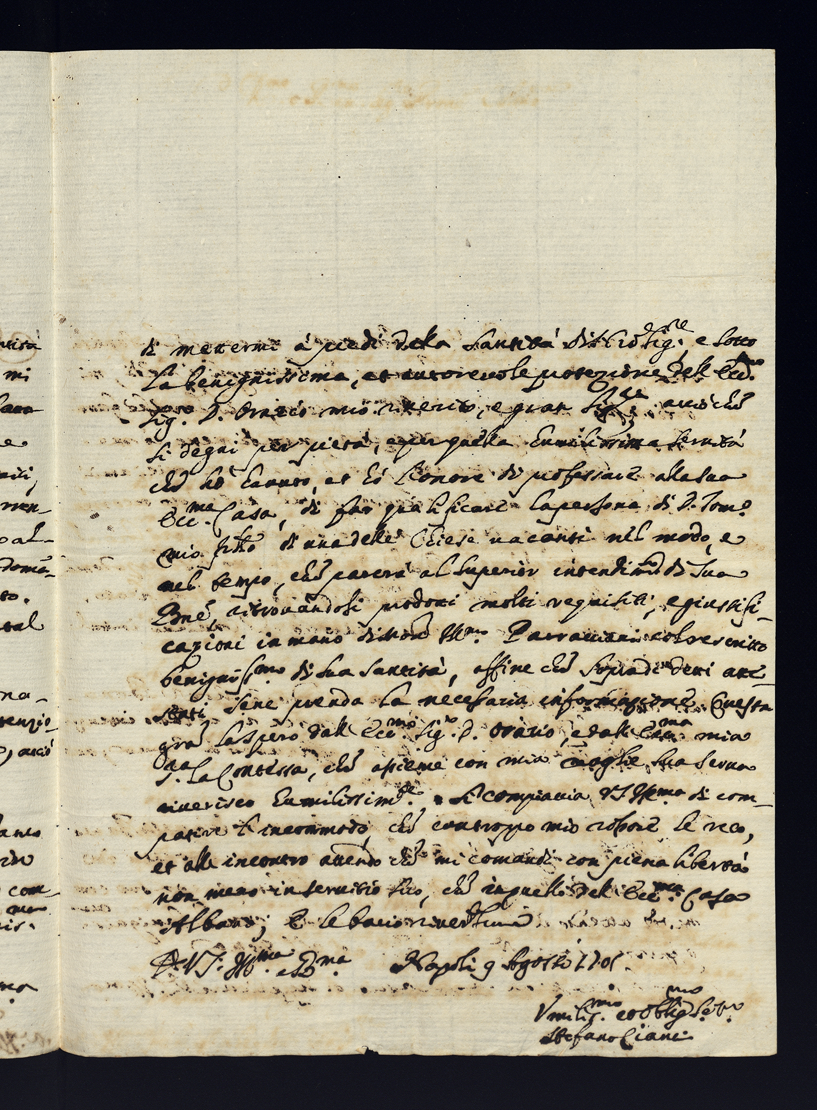 di mettermi a piedi della Santità di Nro Sigre. e sotto
la benignissima, et autorevole protezione dell' Eccmo.
Sig. D. Orazio mio riverito, e gran Sigre, acciò che
si degni per pietà, e per quella humilissima servitù
che hò havuto, et hò l'onore di professare alla sua
Eccma. Casa, di far qualificare la persona di D. Tomo.
mio fratto di una delle Chiese vacanti nel modo, e
nel tempo, che parerà al superior intendimto di Sua
Bne, ritrovandosi prodotti molti requisiti, e giustifi-
cazioni in mano di Monr Illmo. Parravicini col rescritto
benignissmo di Sua Santità, affine che sopra di detti
sene prenda la necessaria informazione. Questa
gra la spero dall' Eccmo. Sigr. D. Orazio, e dall' Eccma mia
Sa. la Contessa, che assieme con mia moglie sua serva
riverisco humilissimte. Si compiaccia V.S. Illma di com-
patire l'incommodo, che con troppo mio rossore le reco,
et all' incontro attendo che mi comandi con piena libertà
non meno in servitio suo, che in quello dell' Eccma. Casa
Albani; E le bacio riverte
Di V.S. Illma e Rma. Napoli 9 Agosto 1701.
Vmilismo. et Obligmo Servre.
Stefano Ciani
ntità
mi
e
rren-
al-
to.
tal
na-
, acciò
com-